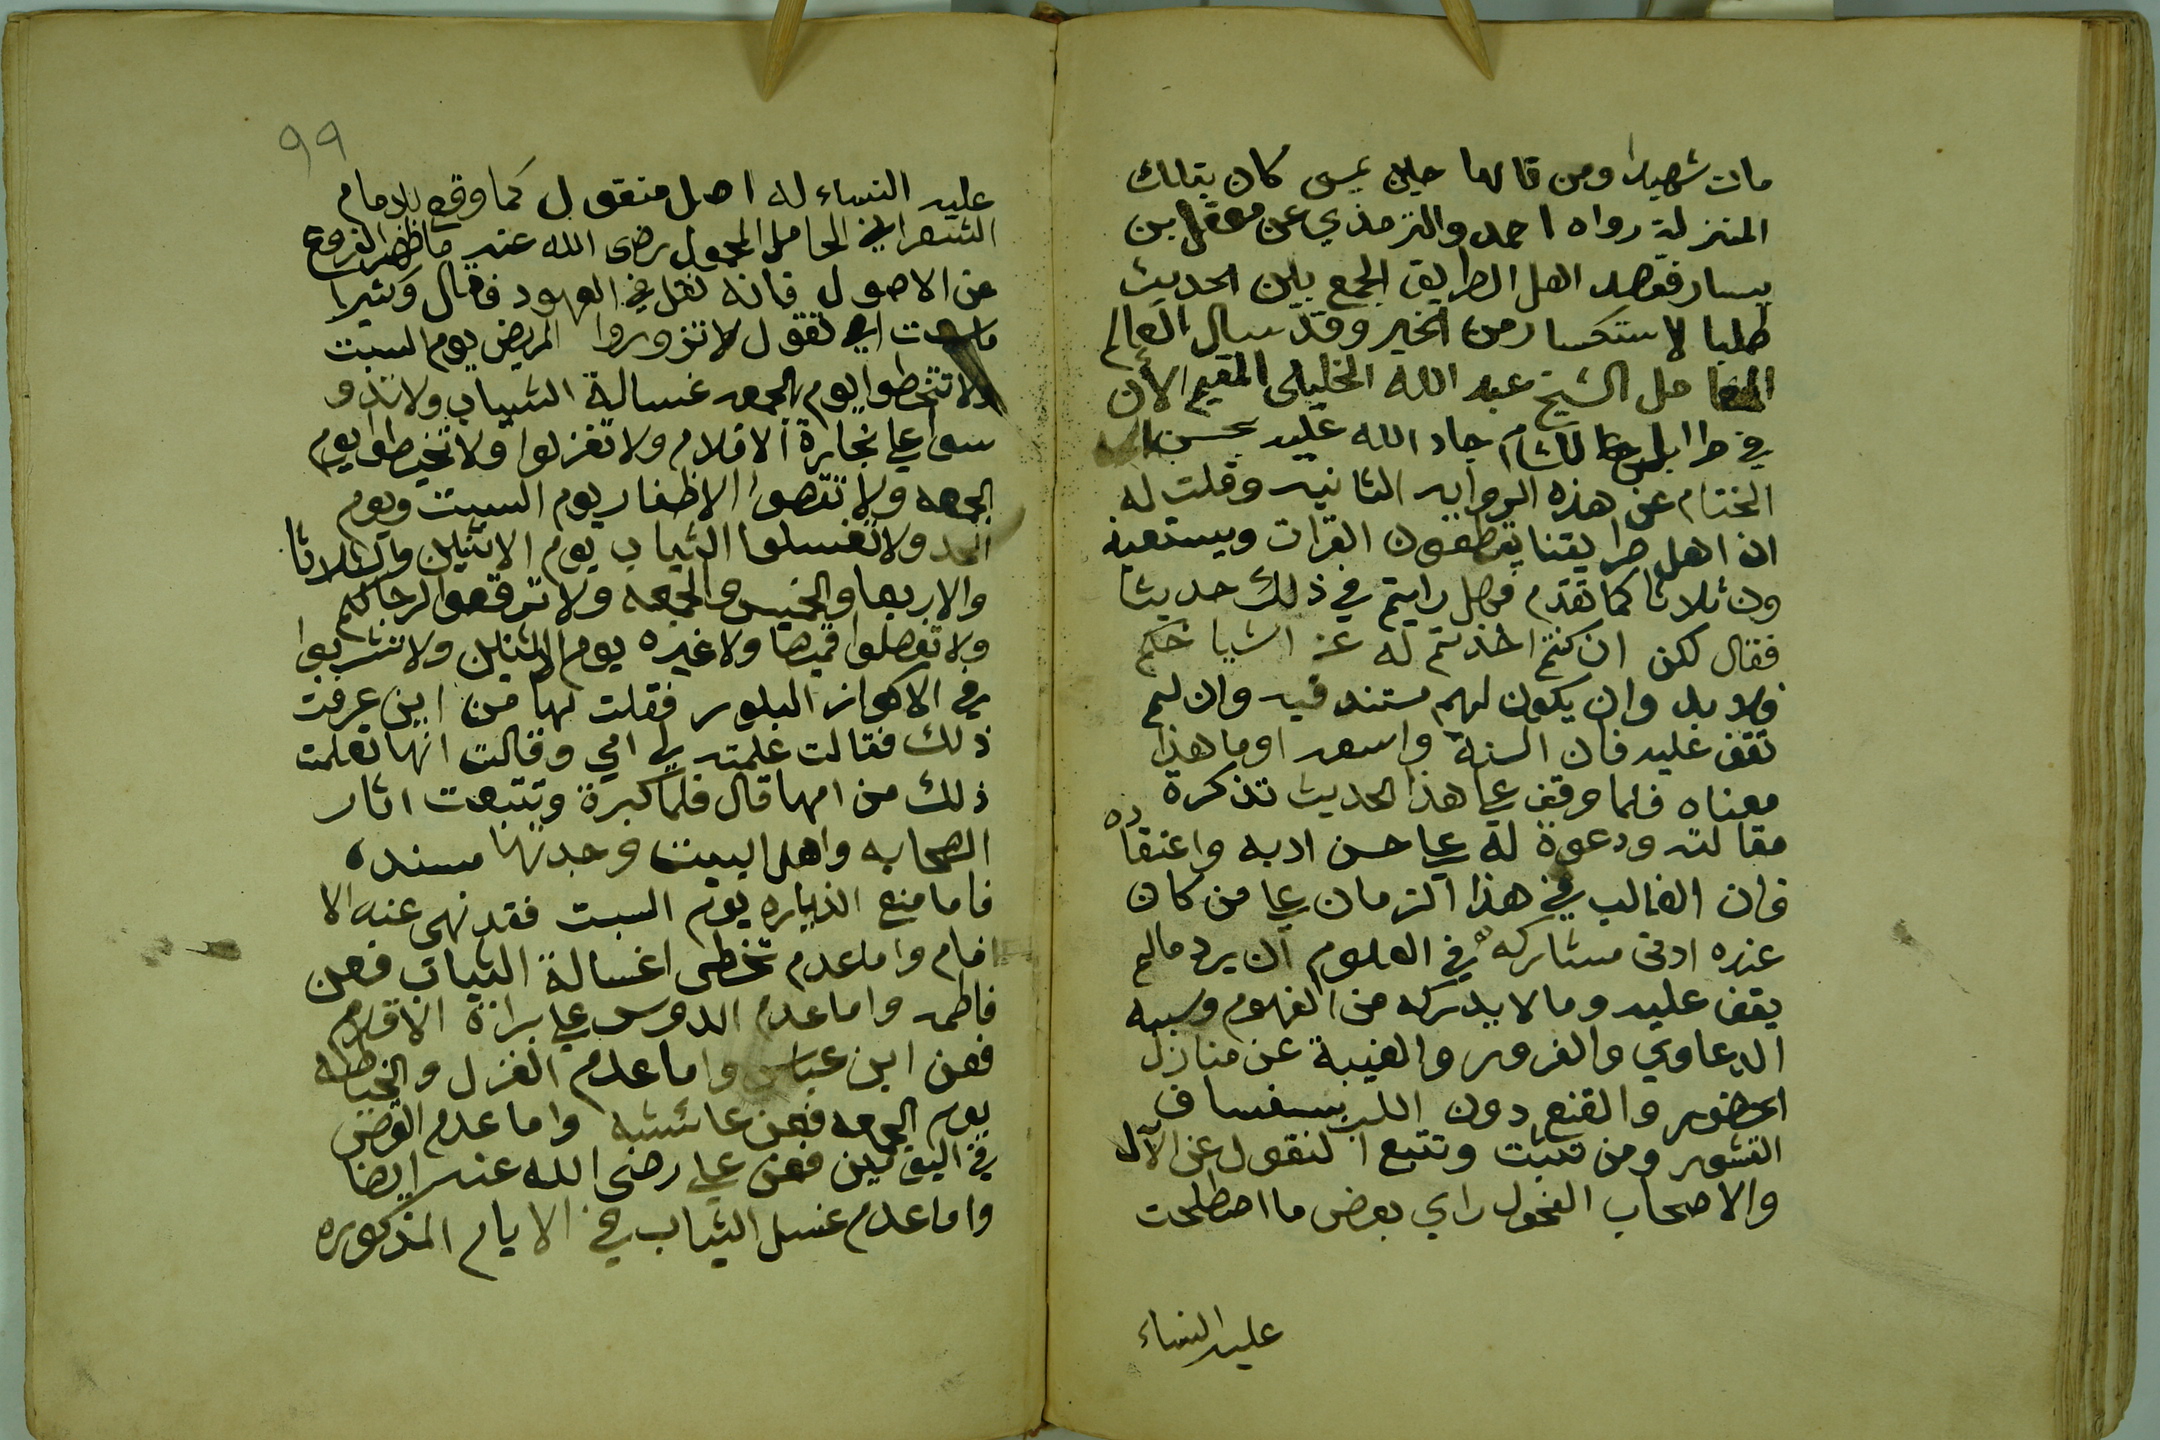 مات شهيدا ومن قالها حين يمسى كان بتلك
المنزلة رواه احمد والترمذي عن معقل بن
يسار فقصد اهل الطريق الجمع بين الحديث
طلبا لاستكسار من الخير وقد سال العالم
الشيخ عبد الله الخليلى المقيم الأن
في طرابلس الشام جاد الله عليه بحسن
الختام عن هذه الروايه الثانيه وقلت له
ان اهل طرايقنا القرات ويستعيذ
ون ثلاثا كما تقدم فهل رايتم في ذلك حديثا
فقال لكن ان كنتم اخذتم له عن اشياخكم
فلا بد وان يكون لهم مستند فيه وان لم
نقف عليه فان السنة واسعه او ما هذا
معناه فلما وقف علي هذا الحديث تذكرة
مقالته ودعوة له علي حسن ادبه واعتقاده
فان الغالب في هذا الزمان علي من كان
عنده ادنى مشاركه في العلوم أن يرد مالم
يقف عليه ومالا يدركه من الفهوم وسببه
الدعاوي والغرور والغيبة عن منازل
الحضور والقنع دون اللب بسفساف
القشور ومن تثبت وتتبع النقول عن الآل
والاصحاب الفحول راي بعض ما اصطلحت
عليه النساء
99
عليه النساء له اصل منقول كما وقع للامام
الشعراني الحامل المحمول رضى الله عنه ما ظهر الفروع
عن الاصول فانه نقل في العهود فقال وكثيرا
ما سمعت امي تقول لا تزوروا المريض يوم السبت
ولا تتخطوا يوم الجمعه غسالة الثياب ولا تدو
سوا علي نجارة الاقلام ولا تغزلوا ولا تخيطوا يوم
الجمعه ولا تقصوا الاظفار يوم السبت ويوم
الحد ولا تغسلوا الثياب يوم الاثنين والثلاثا
والاربعا والخميس والجمعة ولا ترقعوا لرجالكم
ولا تفصلوا قميصا ولا غيره يوم الاثنين ولا تشربوا
في الاكواز البلور فقلت لها من اين عرفت
ذلك فقالت علمته لي امي وقالت انها تعلمت
ذلك من امها قال فلما كبرة وتتبعت اثار
الصحابه واهل البيت وجدتها مسنده
فاما منع الزياره يوم السبت فقد نهى عنه الا
امام واما عدم تخطى اغسالة الثياب فعن
فاطمه واما عدم الدوس علي براة الاقلام
فعن ابن عباس واما عدم الغزل والخياطه
يوم الجمعه فعن عائشه واما عدم القص
في اليومين فعن علي رضى الله عنه ايضا
واما عدم غسل الثياب في الايام المذكوره